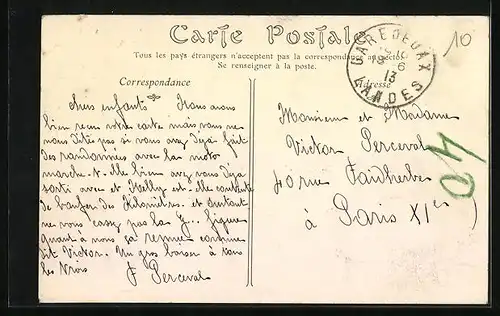 Carte Postale
Tous les pays étrangers n'acceptent pas la correspondance au recto
Se renseigner à la poste.
Correspondance
Adresse
GAREDEDAX
6
13
LANDES
10
40
Chers enfants Nous avons
bien reçu votre carte mais vous ne
nous dites pas si vous avez déjà fait
des randonnées avec la moto
marche-t-elle bien avez vous déjà
sorti avec et Nelly est-elle contente
de bouffer des Kilomètres. et surtout
ne vous cassez pas la g... figure
quant à nous ça comme
dit Victor. Un gros baiser à tous
les trois
F Perceval
Monsieur et Madame
Victor Perceval
40 rue Faidherbe
à Paris XIe